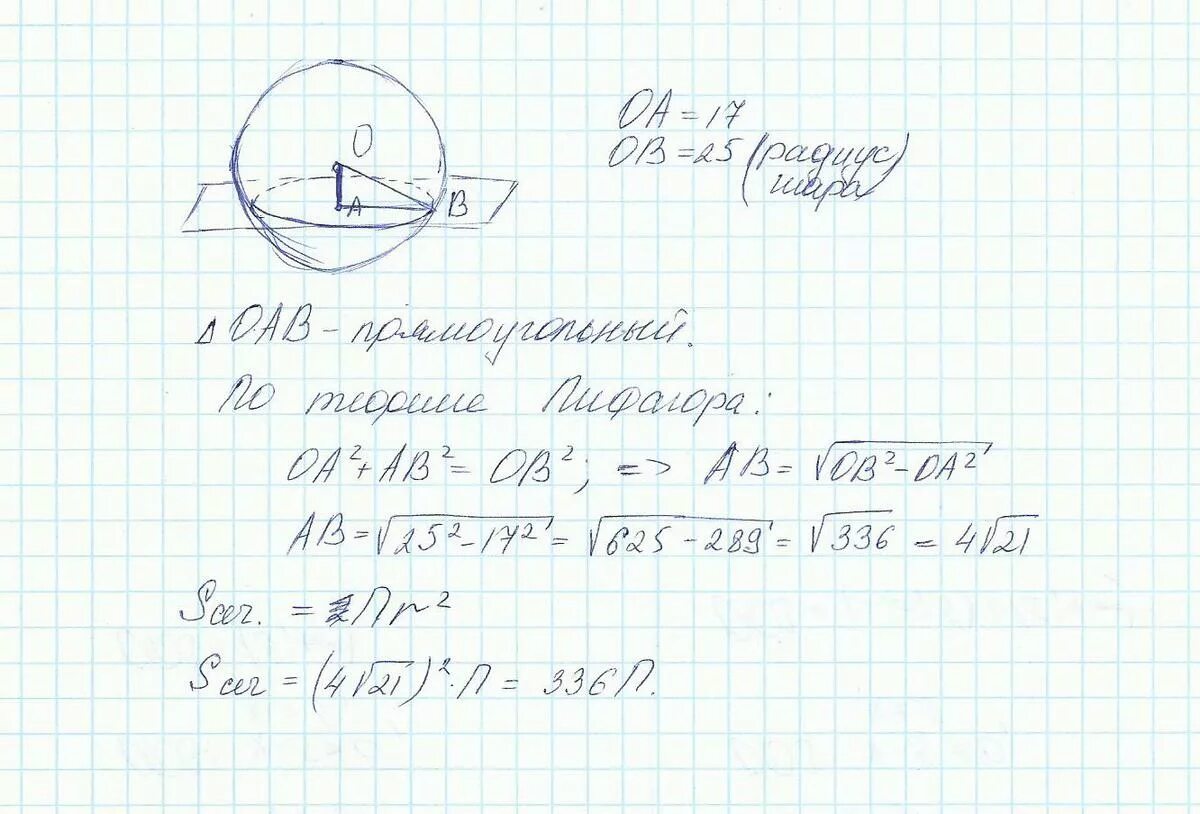 O
A
B
OA = 17
OB = 25 (радиус
шара)
Δ OAB - прямоугольный.
По теореме Пифагора:
OA² + AB² = OB²; => AB = √OB² - OA²
AB = √25² - 17² = √625 - 289 = √336 = 4√21
Sсег. = Пr²
Sсег = (4√21)² · П = 336П.